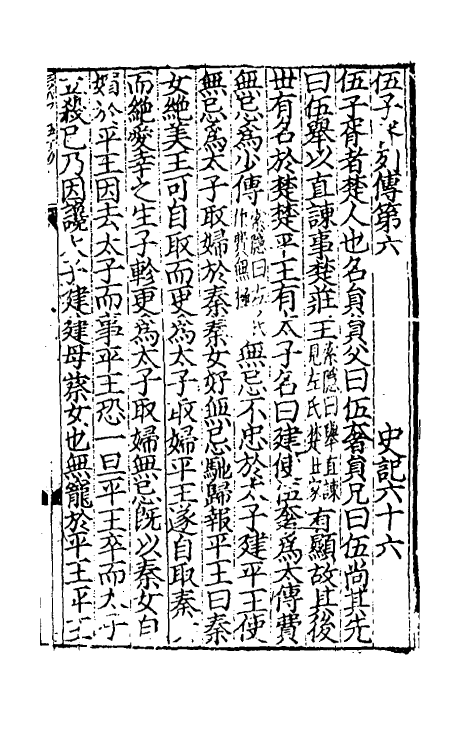 伍子胥列傳第六 史記六十六
伍子胥者楚人也名員員父曰伍奢員兄曰伍尚其先
曰伍舉以直諫事楚莊王索隱曰舉直諫見左氏楚世家有顯故其後
世有名於楚楚平王有太子名曰建使伍奢爲太傅費
無忌爲少傅索隱曰左氏作費無極無忌不忠於太子建平王使
無忌爲太子取婦於秦秦女好無忌馳歸報平王曰秦
女絶美王可自取而更爲太子取婦平王遂自取秦
而絶愛幸之生子軫更爲太子取婦無忌既以秦女自
媚於平王因去太子而事平王恐一旦平王卒而太子
立殺己乃因讒太子建建母蔡女也無寵於平王平王